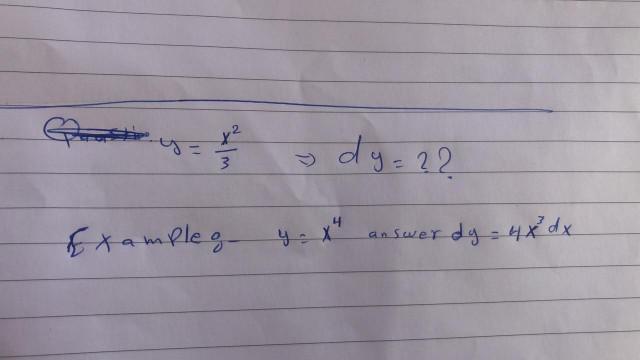 y = x²/3 ⇒ dy = ??
Example:- y = x⁴ answer dy = 4x³ dx